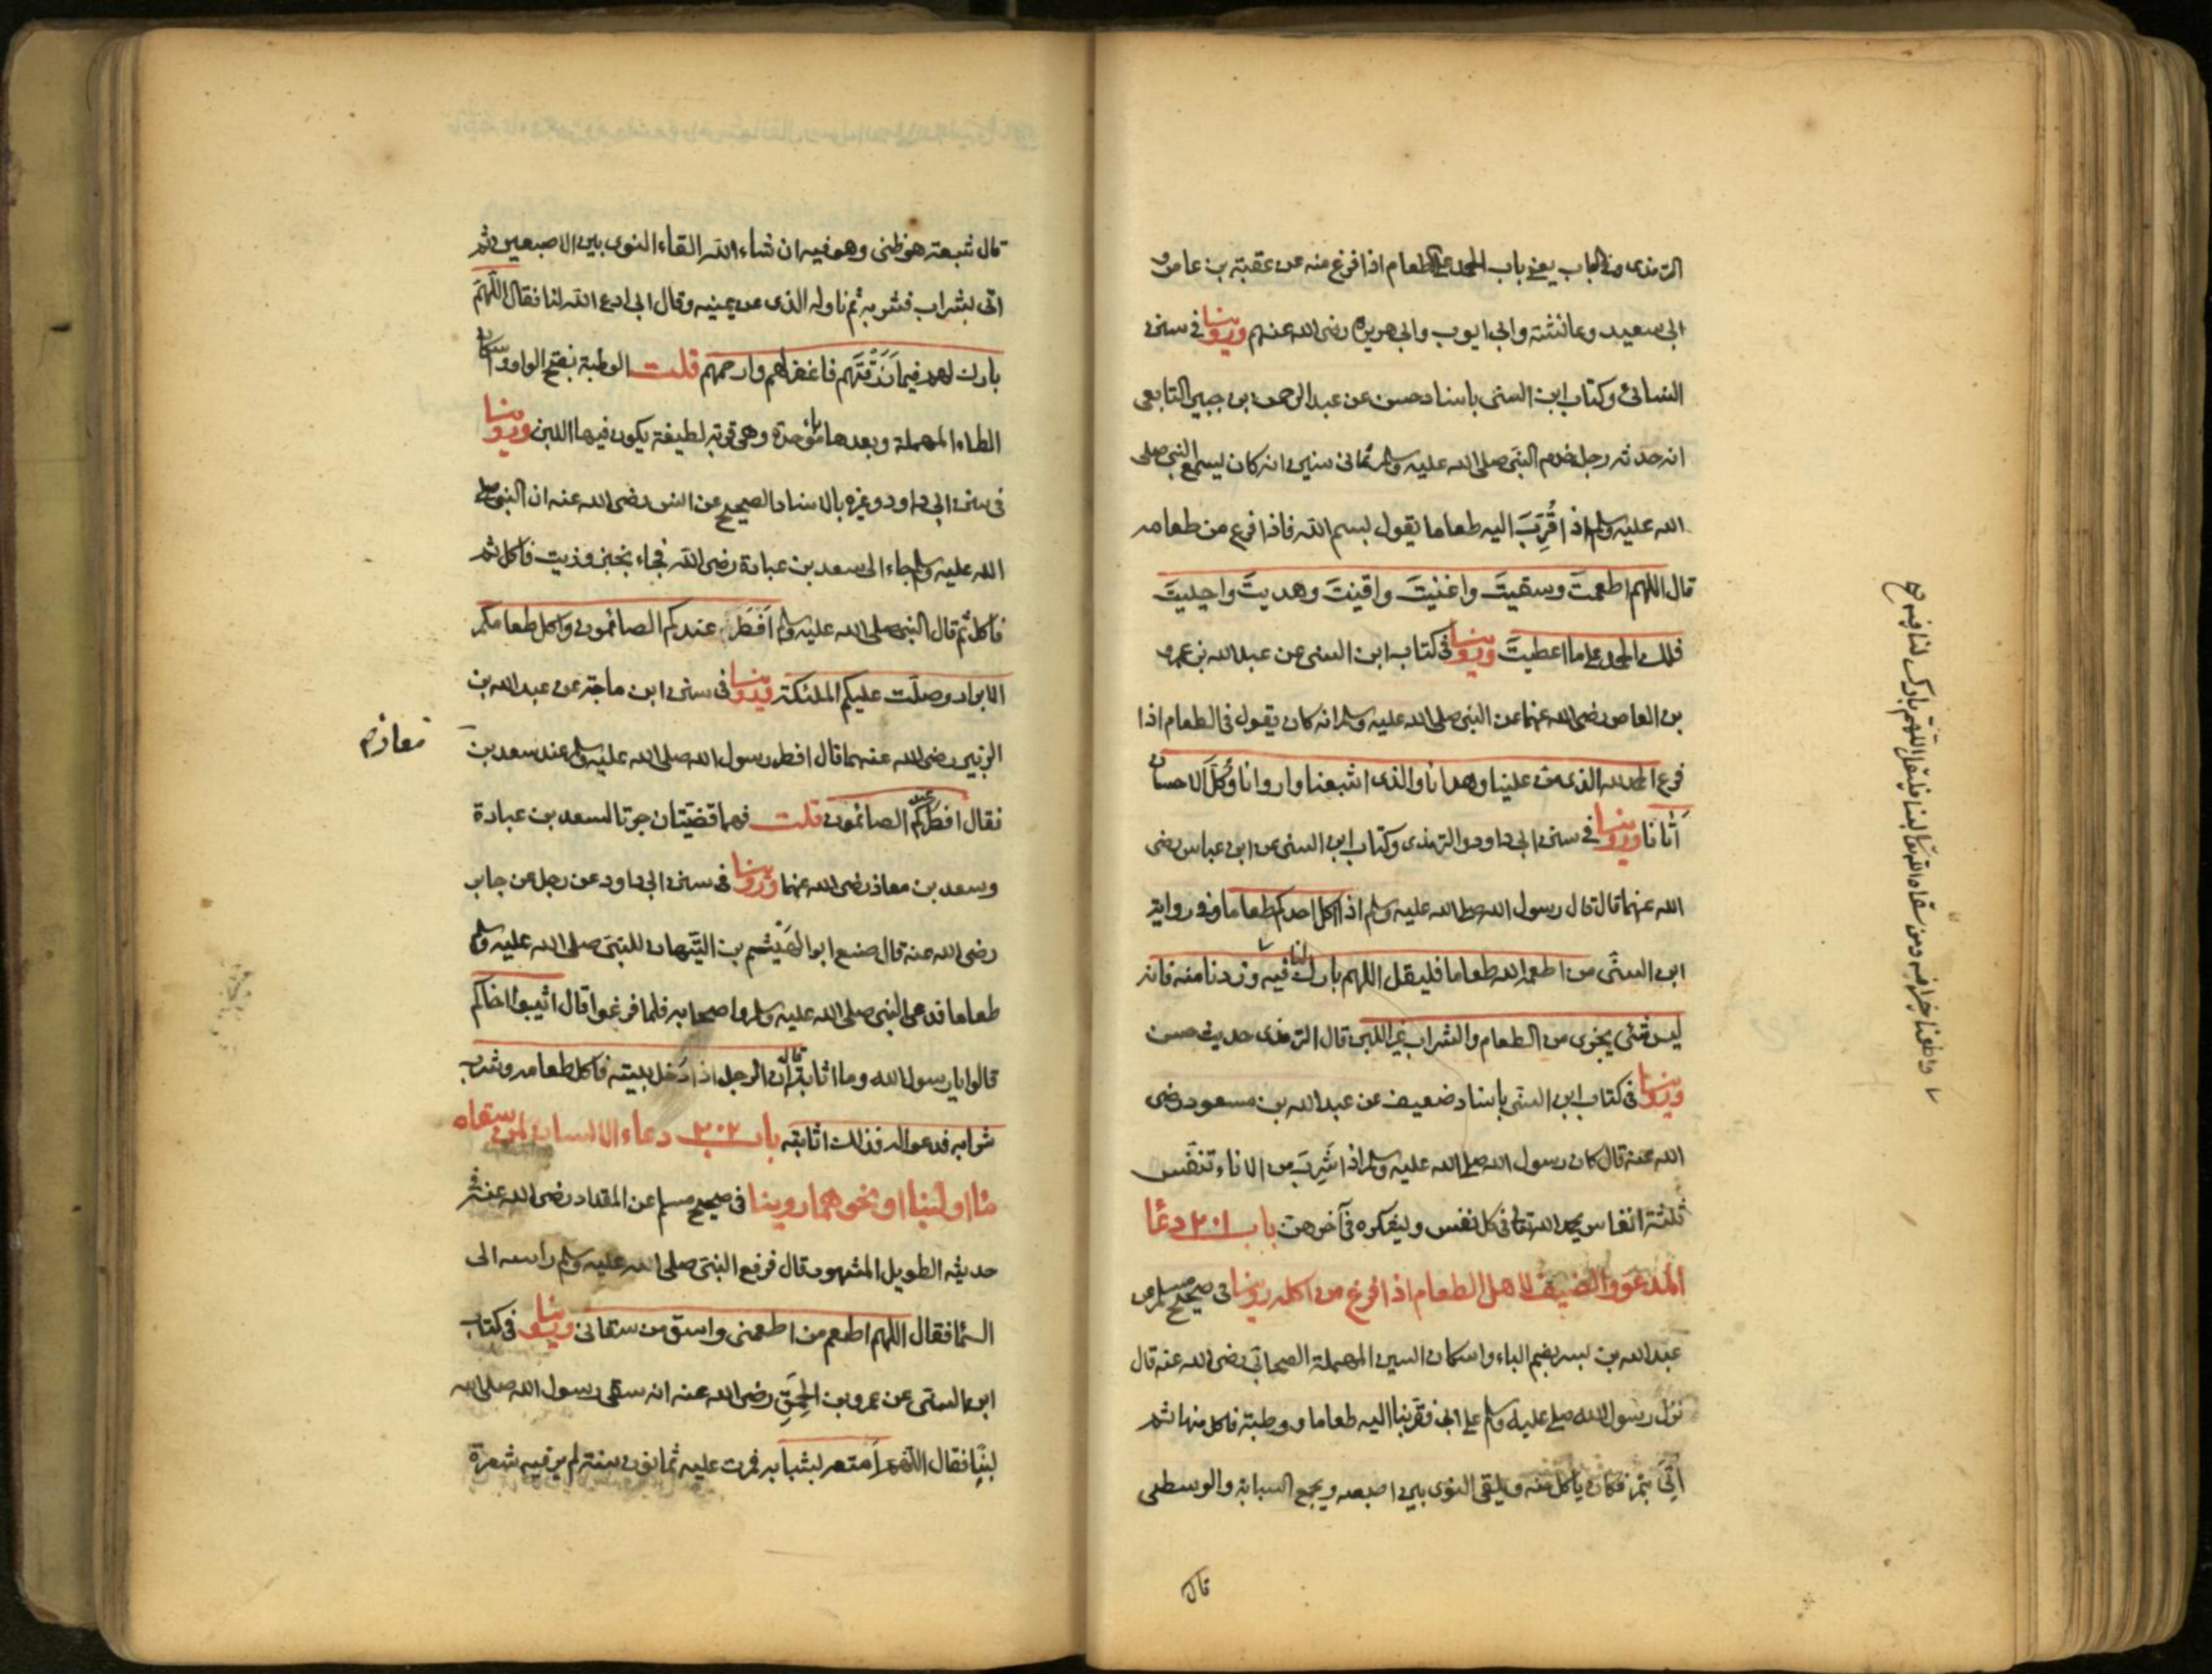 الترمذى وفى الباب يعنى باب الحمد على الطعام اذا فرغ منه عن عقبة بن عامر و
ابى سعيد وعائشة وابى ايوب وابى هريرة رضى الله عنهم وروينا فى سنن
النسائى وكتاب ابن السنى باسناد حسن عن عبد الرحمن بن جبير التابعى
انه حدثه رجل خدم النبى صلى الله عليه وسلم ثمانى سنين انه كان يسمع النبى صلى
الله عليه وسلم اذا قُرِّبَ اليه طعاما يقول بسم الله فاذا فرغ من طعامه
قال اللهم اطعمتَ وسقيتَ واغنيتَ واقنيتَ وهديتَ واحييتَ
فلك الحمد على ما اعطيتَ وروينا فى كتاب ابن السنى عن عبد الله بن عمرو
بن العاص رضى الله عنهما عن النبى صلى الله عليه وسلم انه كان يقول فى الطعام اذا
فرغ الحمد لله الذى منّ علينا وهدانا والذى اشبعنا واروانا وكُلَّ الاحسان
آتانا وروينا فى سنن ابى داود والترمذى وكتاب ابن السنى عن ابن عباس رضى
الله عنهما قال قال رسول الله صلى الله عليه وسلم اذا اكل احدكم طعاما وفى رواية
ابن السنّى من اطعمه الله طعاما فليقل اللهم بارك لنا فيه وزدنا منه فانه
ليس شئ يجزى من الطعام والشراب غير اللبن قال الترمذى حديث حسن
وروينا فى كتاب ابن السنّى باسناد ضعيف عن عبد الله بن مسعود رضى
الله عنه قال كان رسول الله صلى الله عليه وسلم اذا شَرِبَ من الاناء تنفّس
ثلثة انفاس يحمد الله تعالى فى كل نفس ويشكره فى آخرهن باب ٢٠١ دعا
المدعوّ والضيف لاهل الطعام اذا فرغ من اكله روينا فى صحيح مسلم عن
عبد الله بن بسر بضم الباء واسكان السين المهملة الصحابى رضى الله عنه قال
نزل رسول الله صلى عليه وسلم على ابى فقربنا اليه طعاما ووطبة فاكل منها ثم
اُتِىَ بتمر فكان ياكل منه ويلقى النوى بين اصبعه ويجمع السبابة والوسطى
قال
واطعمنا خيرا منه ومن سقاه الله تعالى لبنا فليقل اللهم بارك لنا فيه
قال شعبة هو ظنى وهو فيه ان شاء الله القاء النوى بين الاصبعين ثم
اتى بشراب فشربه ثم ناوله الذى عن يمينه وقال ابى ادع الله لنا فقال اللّهمّ
بارك لهم فيما رَزَقْتَهم فاغفر لهم وارحمهم قلت الوطبة بفتح الواو واسكان
الطاء المهملة وبعدها با موحدة وهى قربة لطيفة يكون فيها اللبن وروينا
فى سنن ابى داود وغيره بالاسناد الصحيح عن انس رضى الله عنه ان النبى صلى
الله عليه وسلم جاء الى سعد بن عبادة رضى الله فجاء بخبز وزيت فاكل ثم
فاكل ثم قال النبى صلى الله عليه وسلم اَفْطَرَ عندكم الصائمون واكل طعامكم
الابرار وصلّت عليكم الملئكة وروينا فى سنن ابن ماجة عن عبد الله بن
الزبير رضى الله عنهما قال افطر رسول الله صلى الله عليه وسلم عند سعد بن
معاذ
فقال افطر عندكم الصائمون قلت فهما قضيّتان جرتا لسعد بن عبادة
وسعد بن معاذ رضى الله عنهما وروينا فى سنن ابى داود عن رجل عن جابر
رضى الله عنه قال صنع ابو الهَيْثم بن التَّيّهان للنبىّ صلى الله عليه وسلم
طعاما فدعى النبى صلى الله عليه وسلم واصحابه فلما فرغوا قال اثيبوا اخاكم
قالوا يا رسول الله وما اثابته قال ان الرجل اذا دُخل بيته فاكل طعامه وشرب
شرابه فدعوا له فذلك اثابته باب ٢٠٢ دعاء الانسان لمن سقاه
ماا او لبنا او نحوهما روينا فى صحيح مسلم عن المقداد رضى الله عنه
حديثه الطويل المشهور قال فرفع النبىّ صلى الله عليه وسلم راسه الى
السّما فقال اللهم اطعم من اطعمنى واسق من سقانى وروينا فى كتاب
ابن السنّى عن عمرو بن الحَمِقِ رضى الله عنه انه سقى رسول الله صلى الله
لبنًا فقال اللّهم اَمتعه بشبابه فمرت عليه ثمانون سنة لم ير فيه شعرة